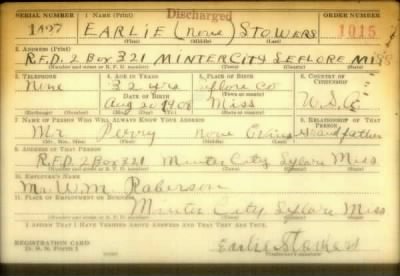 Discharged
SERIAL NUMBER 1. NAME (Print) ORDER NUMBER
EARLIE (none) STOWERS 1015
(First) (Middle) (Last)
2. ADDRESS (Print)
R.F.D. 2 BOX 321 MINTER CITY LEFLORE MISS
3. TELEPHONE 4. AGE IN YEARS 5. PLACE OF BIRTH 6. COUNTRY OF CITIZENSHIP
None 32 yrs Leflore Co
DATE OF BIRTH
Aug 20 1908 Miss U.S.A.
(Exchange) (Number) (Mo.) (Day) (Yr.) (State or country)
7. NAME OF PERSON WHO WILL ALWAYS KNOW YOUR ADDRESS 8. RELATIONSHIP OF THAT PERSON
Mr Perry none Evins grandfather
(Mr., Mrs., Miss) (First) (Middle) (Last)
9. ADDRESS OF THAT PERSON
R.F.D. 2 Box 321 Minter City Leflore Miss.
10. EMPLOYER'S NAME
Mr. W.M. Roberson
11. PLACE OF EMPLOYMENT OR BUSINESS
Minter City Leflore Miss
I AFFIRM THAT I HAVE VERIFIED ABOVE ANSWERS AND THAT THEY ARE TRUE.
REGISTRATION CARD
D. S. S. Form 1
Earlie Stowers